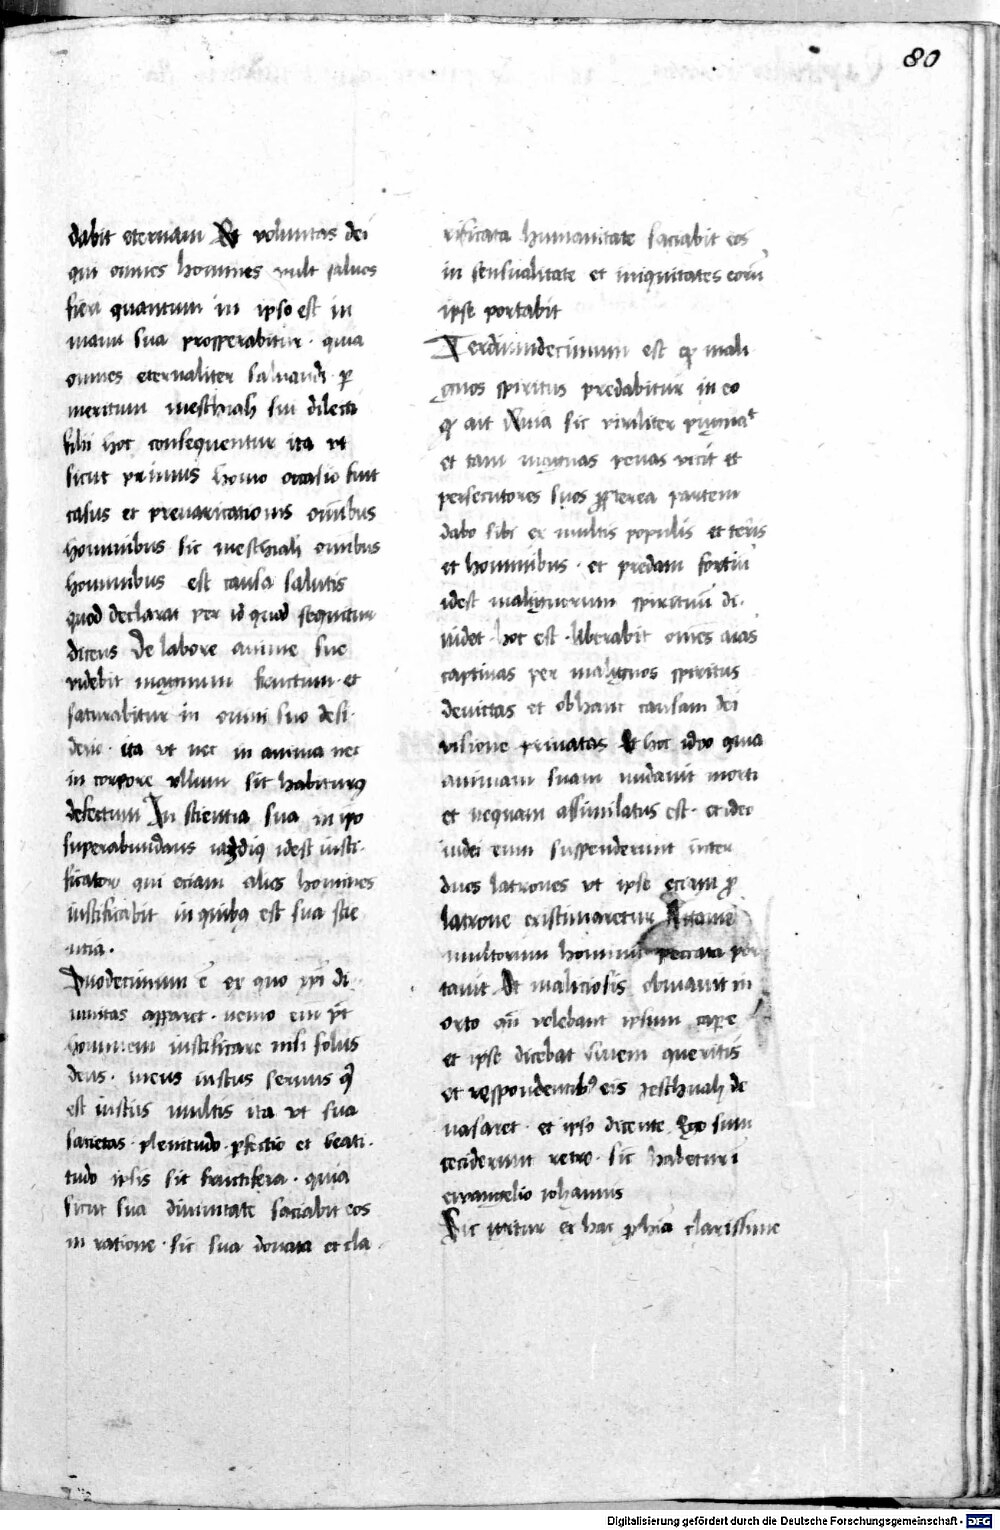 80
dabit eternam Et voluntas dei
qui omnes homines vult saluos
fieri quantum in ipso est in
manu sua prosperabitur · quia
omnes eternaliter saluandi · per
meritum meschiah sui dilecti
filii hoc consequentur ita vt
sicut primus homo occasio fuit
casus et preuaricationis omībus
hominibus sic meschiah omībus
hominibus est causa salutis
quod declarat per id quod sequitur
dicens De labore anime sue
videbit magnum fructum · et
saturabitur in omni suo desi·
derio · ita vt nec in anima nec
in corpore vllum sit habiturꝰ
defectum In scientia sua in ipo
superabundans idest iusti·
ficator qui eciam alios homines
iustificabit in quibꝰ est sua scie
ntia ·
Duodecimum ē ex quo xpi di
uinitas apparet · nemo em pt
hominem iustificare nisi solus
deus · meus iustus seruus
est iustus multis ita vt sua
sacietas · plenitudo · pfectio et beati·
tudo ipsis sit fructifera · quia
sicut sua diuinitate saciabit eos
in ratione · sic sua donata et cla
rificata humanitate saciabit eos
in sensualitate et iniquitates eorū
ipse portabit
Terdiumdecimum est ꝙ mali
gnos spiritus predabitur in eo
ꝙ ait Quia sic viriliter pugnat
et tam magnas penas vicit et
persecutores suos ꝓpterea partem
dabo sibi ex multis populis et terris
et hominibus · et predam fortiū
idest malignorum spirituū di·
uidet · hoc est · liberabit omēs aīas
captiuas per malignos spiritus
deuictas et ob hanc causam dei
visione priuatas Et hoc ideo quia
animam suam nudauit morti
et nequam assimilatus est · et ideo
iudei eum suspenderunt inter
duos latrones vt ipse eciam ꝓ
latrone existimaretur Attamē
multorum hominū peccata por
tauit Et maliciosis obuiauit in
orto qn̄ volebant ipsum cape
et ipse dicebat Quem queritis
et respondentibꝰ eis Jeschuah de
nasaret · et ipso dicente Ego sum
ceciderunt retro · sic habetur i
ewangelio iohannis
Sic igitur ex hac ꝓphīa clarissime
Digitalisierung gefördert durch die Deutsche Forschungsgemeinschaft - DFG